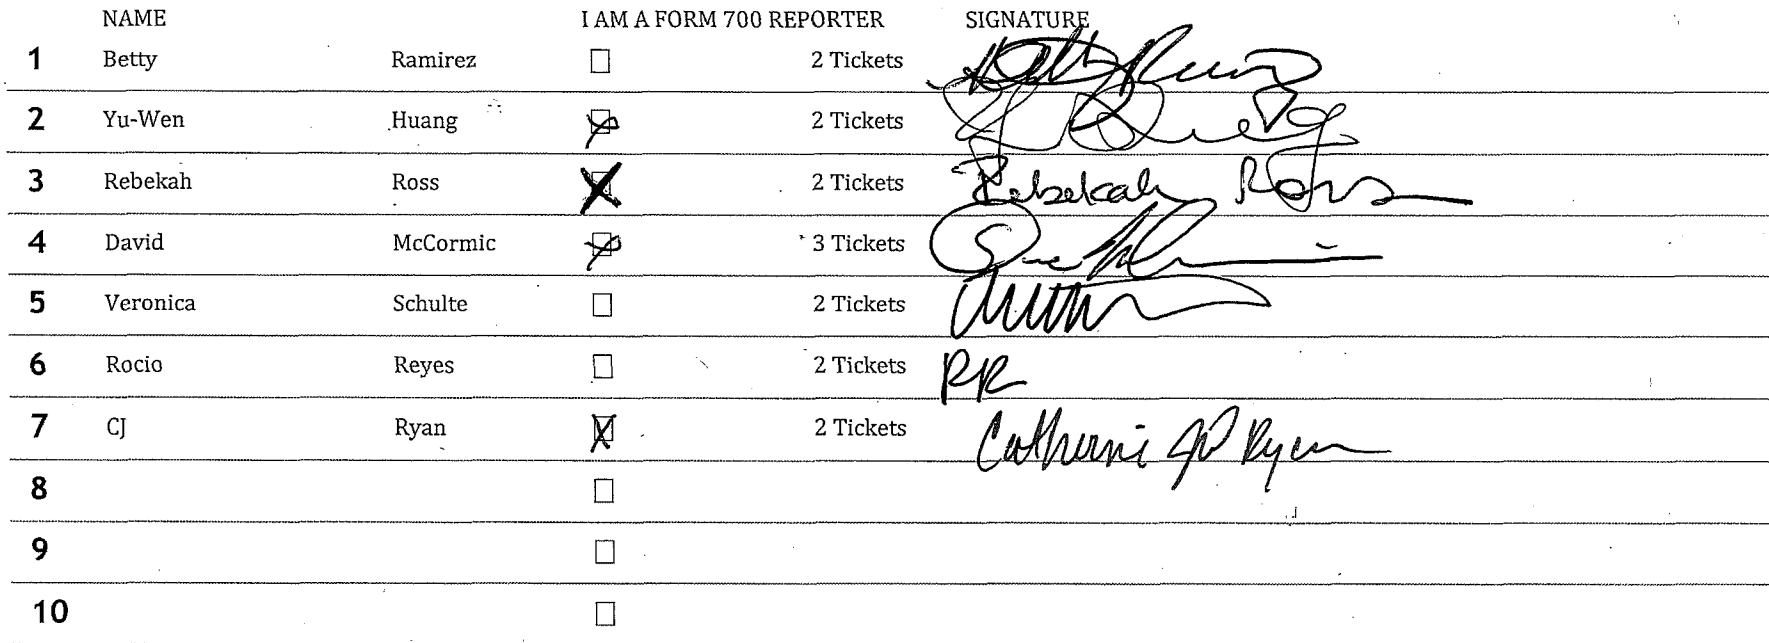 NAME I AM A FORM 700 REPORTER SIGNATURE
1 Betty Ramirez ☐ 2 Tickets
2 Yu-Wen Huang ☒ 2 Tickets
3 Rebekah Ross ☒ 2 Tickets Rebekah Ross
4 David McCormic ☒ 3 Tickets
5 Veronica Schulte ☐ 2 Tickets
6 Rocio Reyes ☐ 2 Tickets RR
7 CJ Ryan ☒ 2 Tickets Catherine JD Ryan
8 ☐
9 ☐
10 ☐